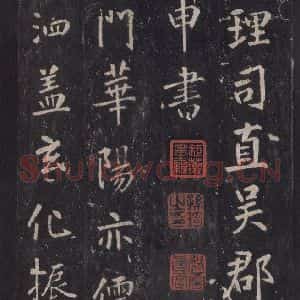 理司直吴郡
申書
門華陽亦儒
洒盖玄化振
Shufawang.CN